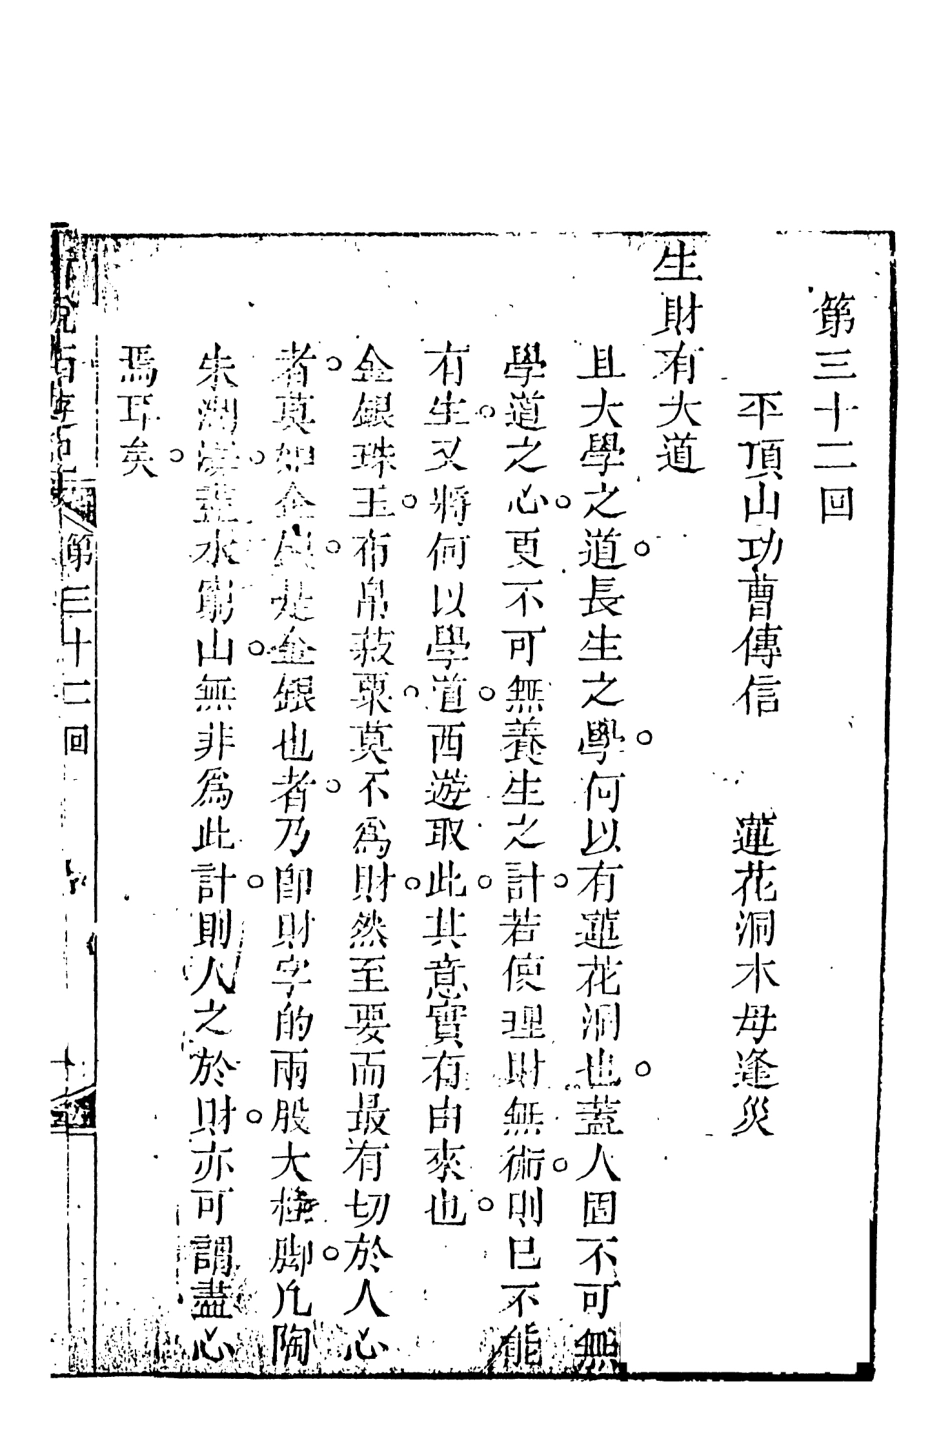 第三十二回
平頂山功曹傳信　蓮花洞木母逢災
生財有大道
且大學之道。長生之學。何以有蓮花洞也。蓋人固不可無
學道之心。更不可無養生之計。若使理財無術。則已不能
有生。又將何以學道。西遊取此。其意實有由來也。
金銀珠玉。布帛菽粟。莫不爲財。然至要而最有切於人心
者。莫如金銀。是金銀也者。乃卽財字的兩股大樁脚。凢陶
朱湖海。水窮山。無非爲此計。則人之於財。亦可謂盡心
焉耳矣。
說西遊記 第三十二回